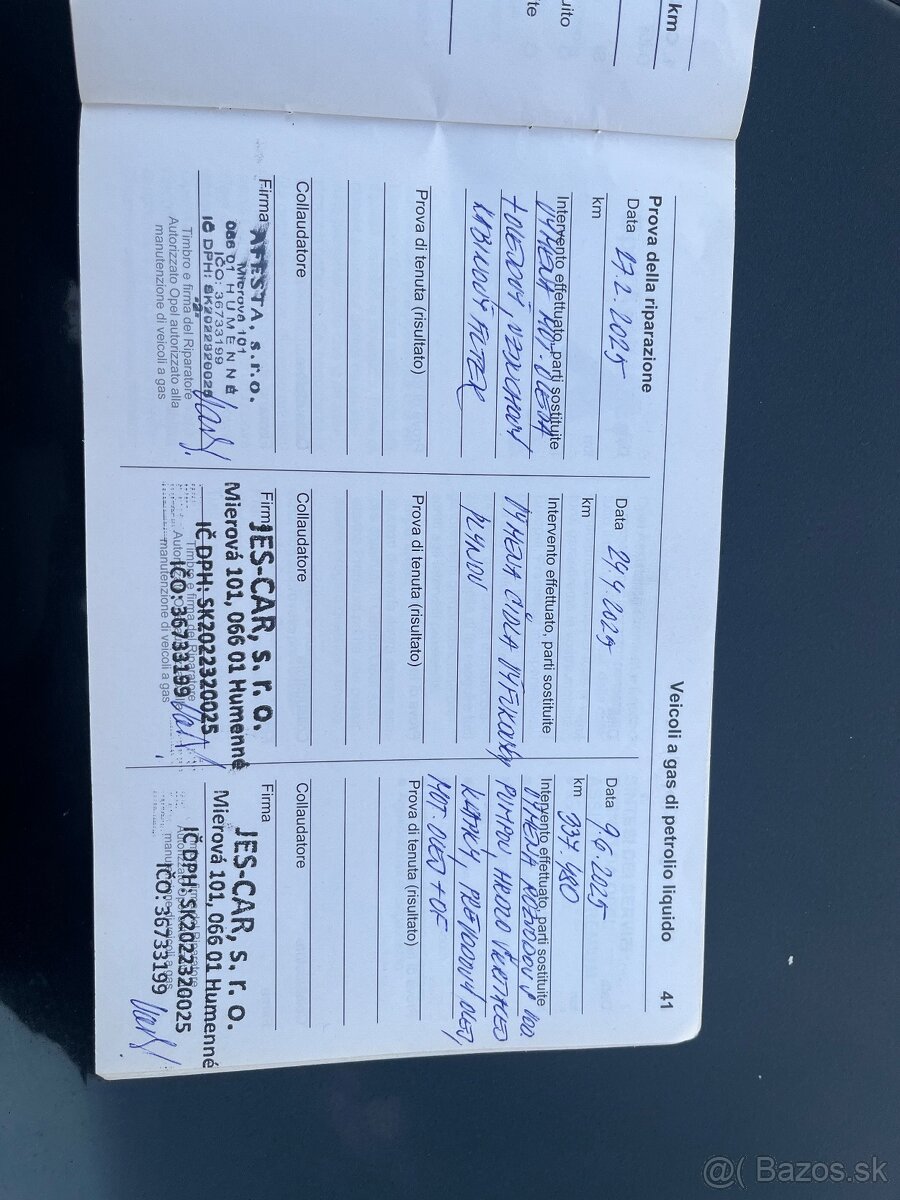 km
uito
te
Veicoli a gas di petrolio liquido
41
Prova della riparazione
Data 27.2.2025
km
Intervento effettuato, parti sostituite
VÝMENA MOT. OLEJA
+ OLEJOVÝ, VZDUCHOVÝ
KABINOVÝ FILTER
Prova di tenuta (risultato)
Collaudatore
Firma
ATESTA, s.r.o.
Mierová 101
066 01 HUMENNÉ
IČO: 36733199
IČ DPH: SK2022320025
-2-
Timbro e firma del Riparatore
Autorizzato Opel autorizzato alla
manutenzione di veicoli a gas
Data 24.4.2025
km
Intervento effettuato, parti sostituite
VÝMENA ČIDLA VÝFUKOVÝCH
PLYNOV
Prova di tenuta (risultato)
Collaudatore
Firma
JES-CAR, s. r. o.
Mierová 101, 066 01 Humenné
IČ DPH: SK2022320025
IČO: 36733199
Timbro e firma del Riparatore
manutenzione di veicoli a gas
Data 9.6.2025
km 337.480
Intervento effettuato, parti sostituite
VÝMENA ROZVODOV S VOD
PUMPOU, HRDLO
KĽUKY, PREVODOVÝ OLEJ,
MOT. OLEJ + OF
Prova di tenuta (risultato)
Collaudatore
Firma
JES-CAR, s. r. o.
Mierová 101, 066 01 Humenné
IČ DPH: SK2022320025
IČO: 36733199
manutenzione di veicoli a gas
@( Bazos.sk